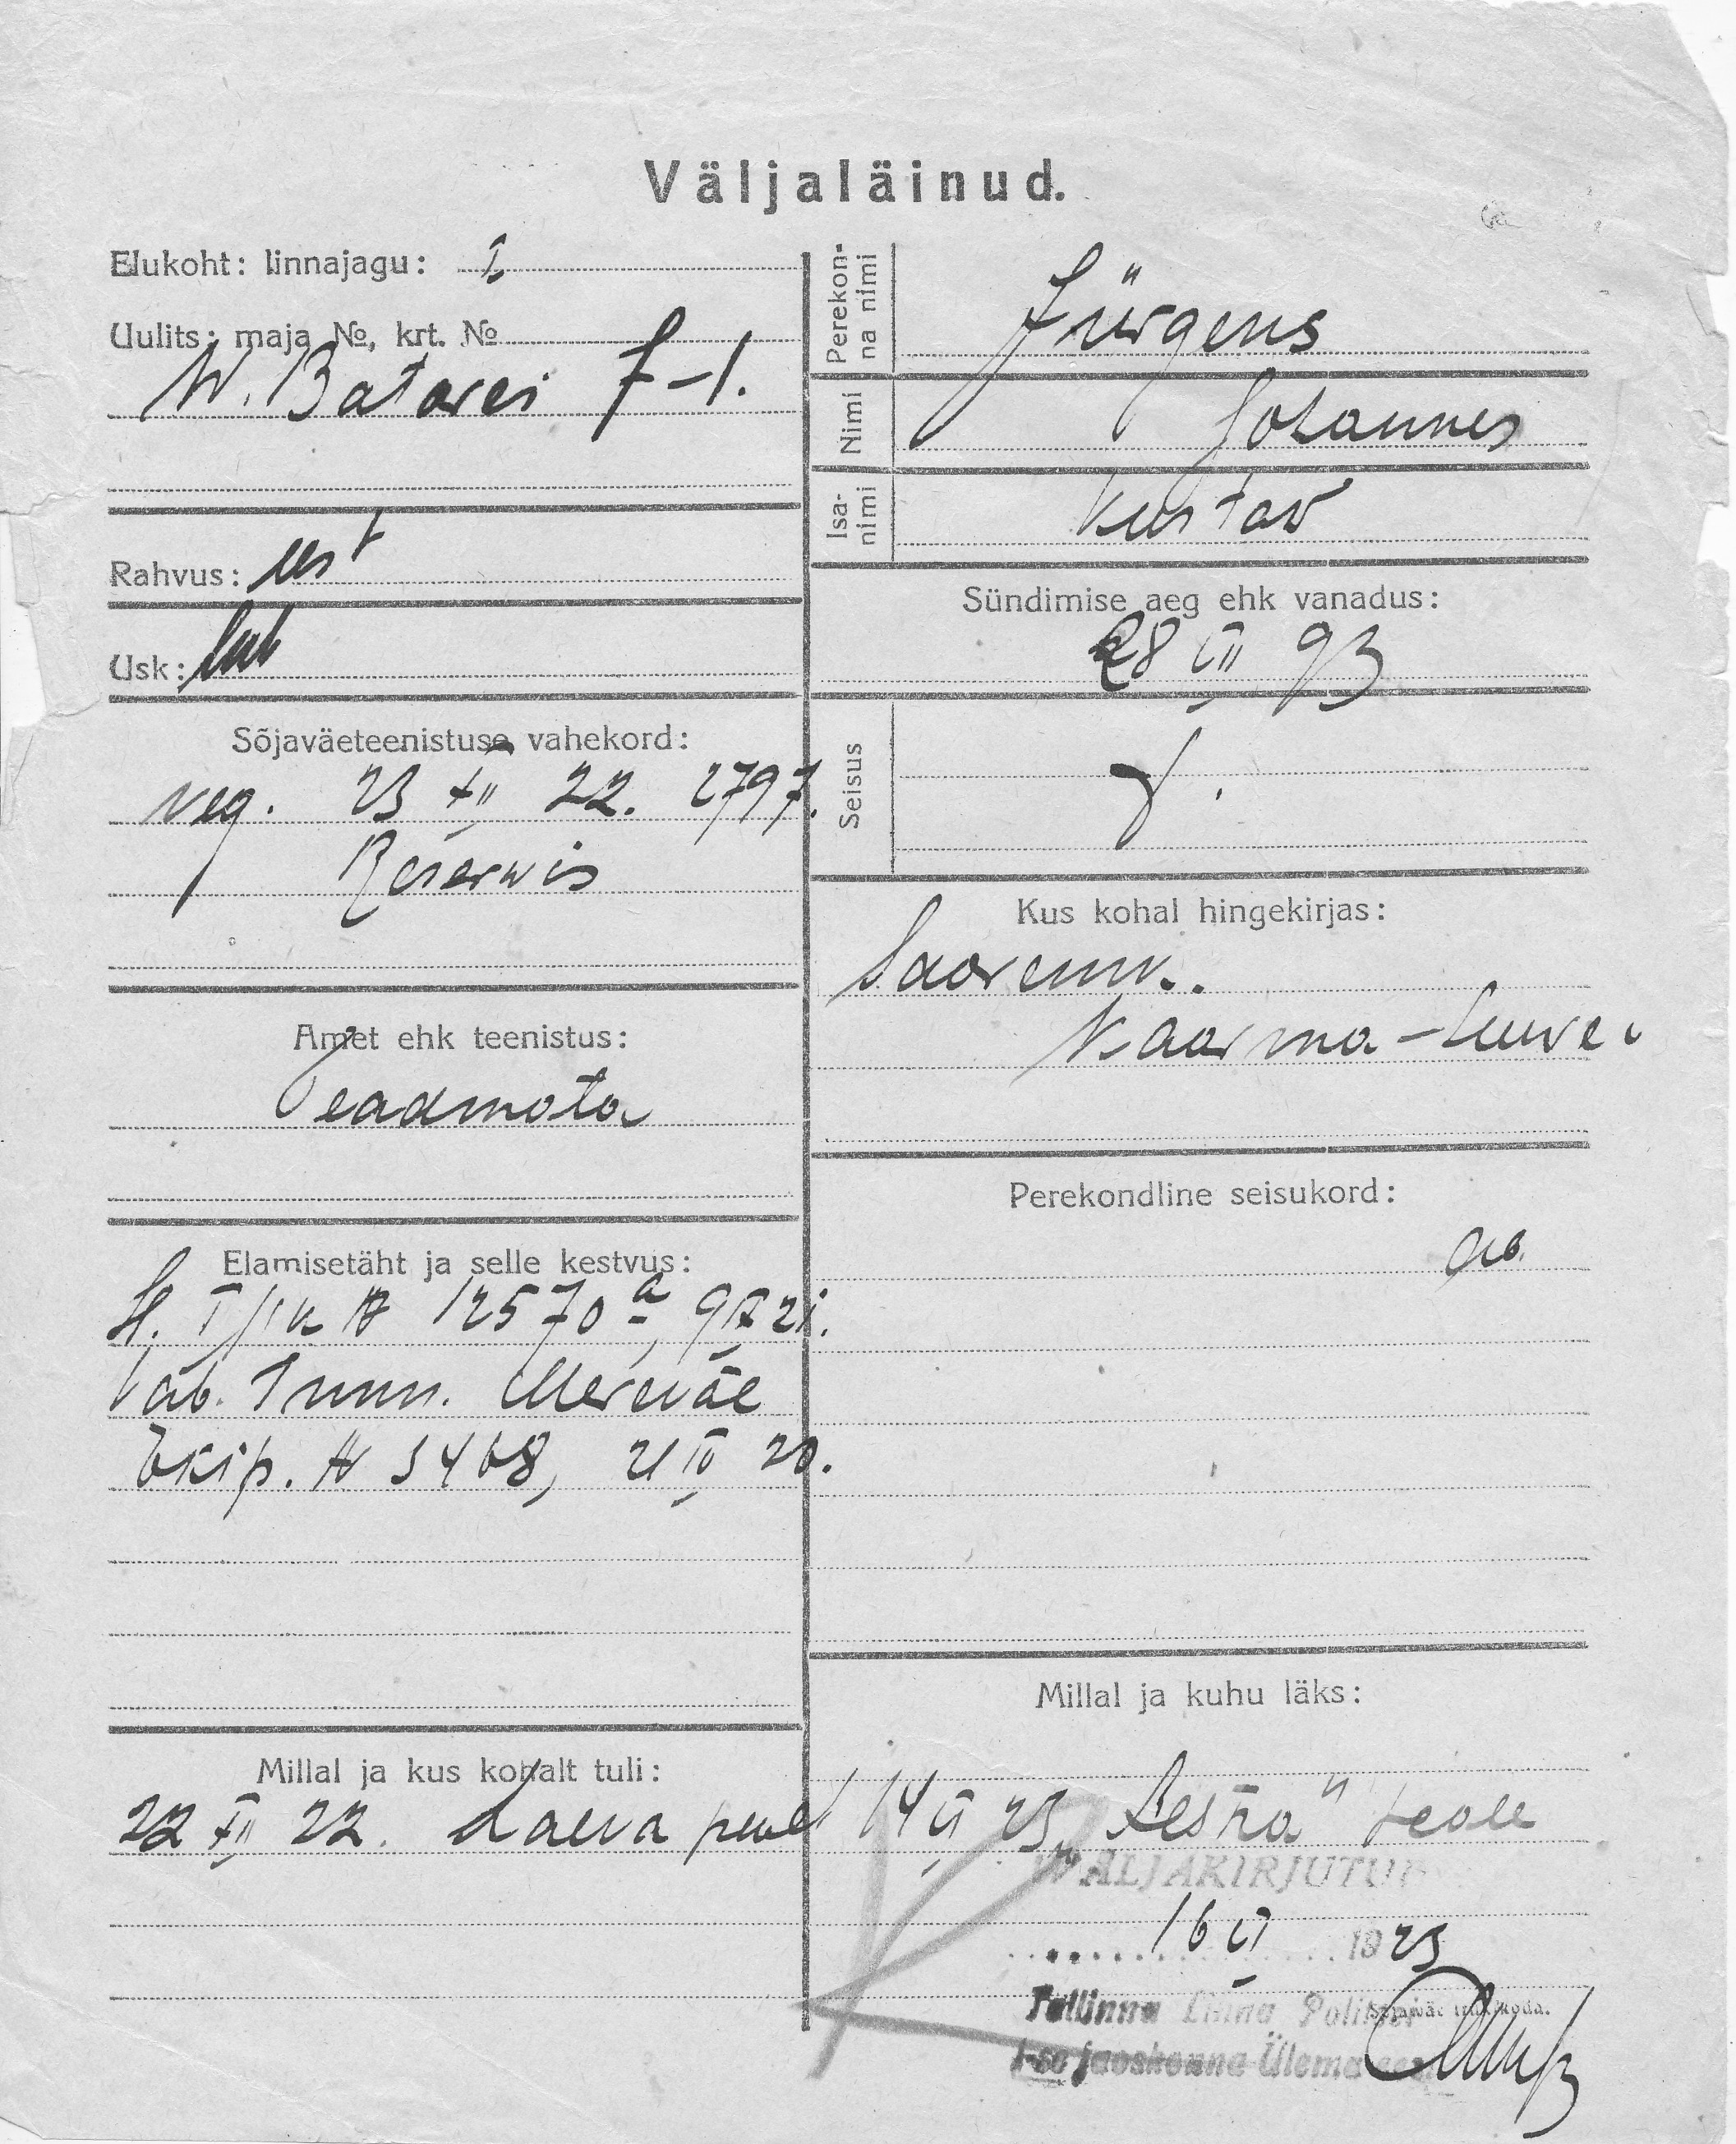 Väljaläinud.
Elukoht: linnajagu: I
Uulits: maja №, krt. №
W. Batarei 7-1.
Rahvus: eest
Usk: lut
Sõjaväeteenistuse vahekord:
reg. 23 XII 22. 2797.
Reserwis
Amet ehk teenistus:
Teadmata
Elamisetäht ja selle kestvus:
12570 a,
Merewäe
Ekip. № 3468, 21 IV 20.
Millal ja kus kohalt tuli:
22 XII 22. Laewa pealt
Perekonna nimi
Jürgens
Nimi
Johannes
Isanimi
Kustav
Sündimise aeg ehk vanadus:
28 III 93
Seisus
Kus kohal hingekirjas:
Saarem.
Kaarma-Suure
Perekondline seisukord:
Millal ja kuhu läks:
14 VI 23 peale
WÄLJAKIRJUTUD
16 VI 1923
Tallinna Linna Politsei
I-se jaoskonna Ülema